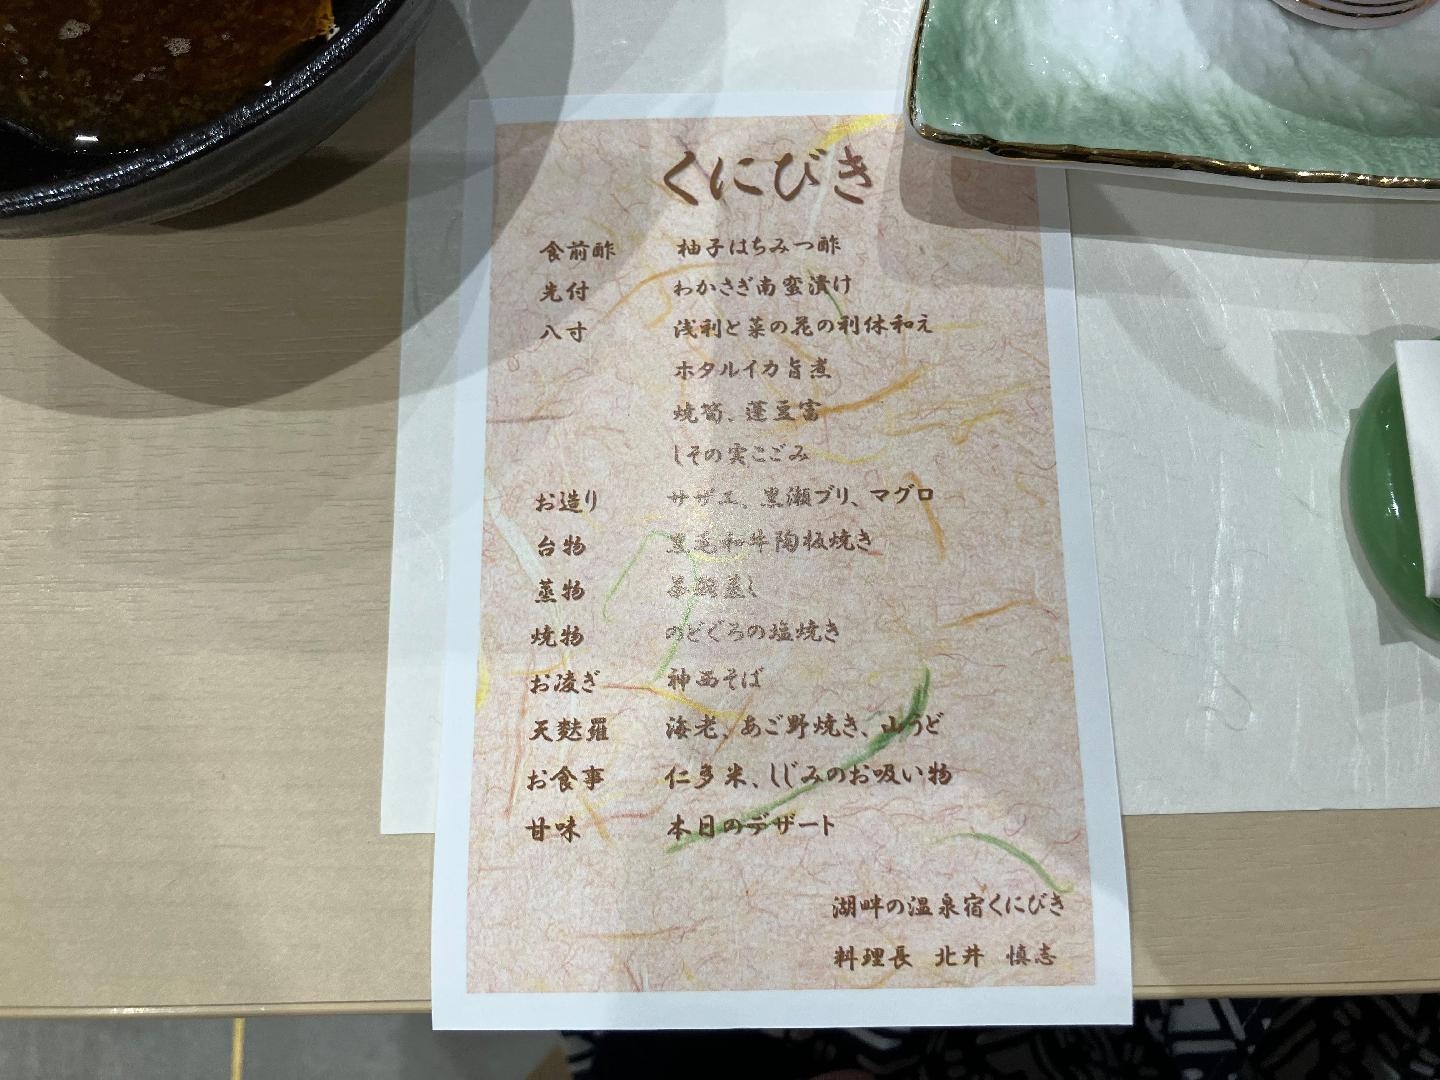 くにびき
食前酢 柚子はちみつ酢
先付 わかさぎ南蛮漬け
八寸 浅利と菜の花の利休和え
ホタルイカ旨煮
焼筍、蓬豆富
しその実こごみ
お造り サザエ、黒瀬ブリ、マグロ
台物 黒毛和牛陶板焼き
蒸物 茶碗蒸し
焼物 のどぐろの塩焼き
お凌ぎ 神西そば
天麩羅 海老、あご野焼き、山うど
お食事 仁多米、しじみのお吸い物
甘味 本日のデザート
湖畔の温泉宿くにびき
料理長 北井 慎志